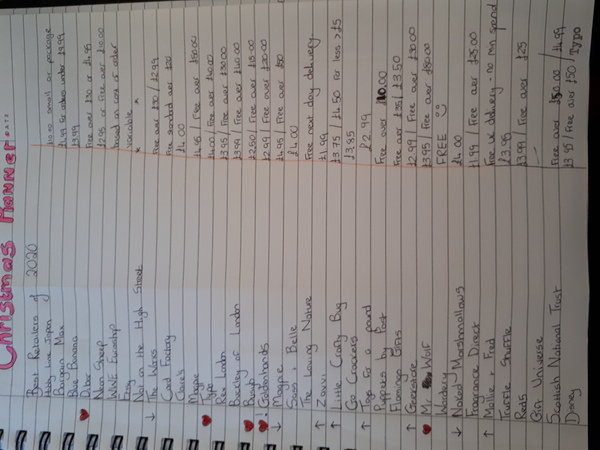 Christmas Planner
Best Retailers of 2020
Hobby Line Japan £10.50 small or package
Bargain Max £1.99 for orders under £9.99
Blue Banana £3.99
Dibor Free over £30 or £4.95
Neon Sheep £2.95 or Free over £10.00
WWE Euroshop based on cost of order
Etsy variable *
Not on the High Street *
↓ The Works Free over £30 / £2.99
Card Factory Free standard over £20
Claire's £4.00
£4.95 Free over £50.00
Hype £4.00 / Free over £40.00
Rex London £3.95 / Free over £30.00
Buckley of London £3.99 Free over £40.00
£2.50 / Free over £15.00
! Goldenhands £2.99 Free over £20.00
↓ Magpie £4.95 Free over £50
+ Belle £4.00
The Loving Nature Free next day delivery
↑ Zavvi £1.99
↑ Little Crafty Bug £3.75 / £4.50 for less >£5
Go Crackers £3.95
↑ Toys for a pound £2.99
Puppets by Post Free over £10.00
Flamingo Gifts Free over £35 / £3.50
↑ Geekstore £2.99 / Free over £30.00
Mr. Wolf £3.95 Free over £50.00
Wordery FREE
↓ Naked Marshmallows £4.00
Fragrance Direct £1.99 / Free over £25.00
↑ Mollie + Fred Free UK delivery - no min spend
Truffle Shuffle £3.95
Reds £3.99 Free over £25
Gift Universe
Scottish National Trust Free over £50.00 / £4.99
Disney £3.95 / Free over £50 / TYPO